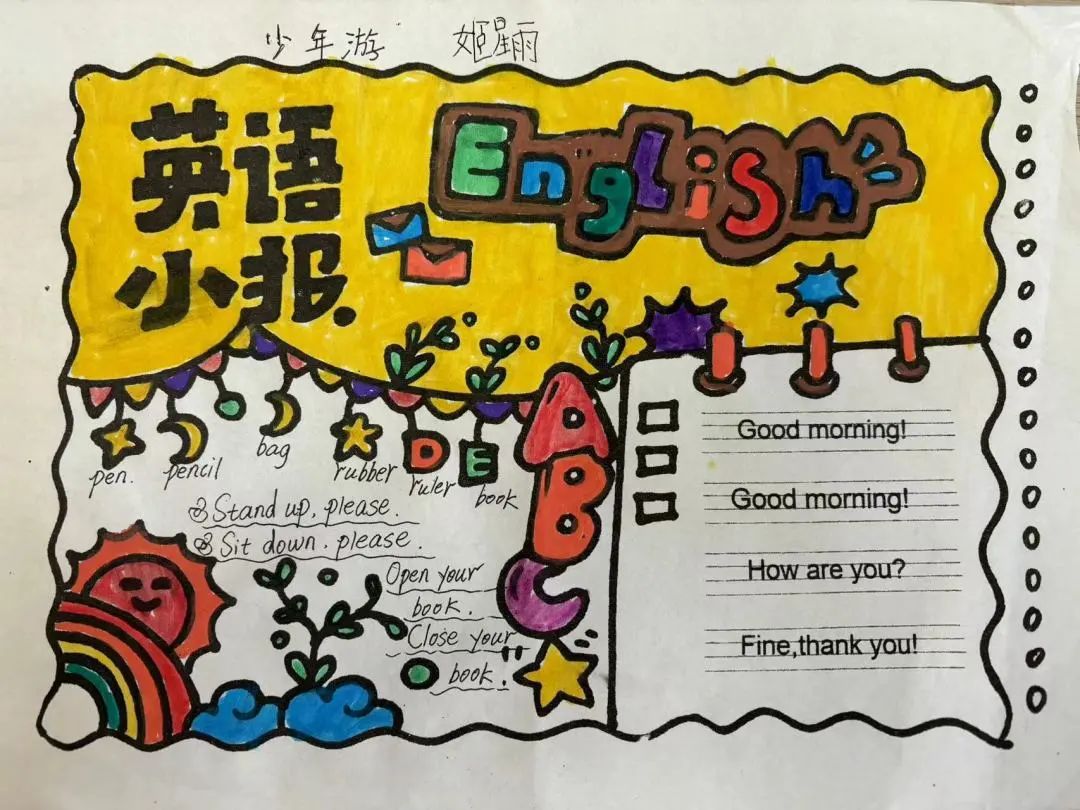 少年游 姬星雨
英语
小报
English
D E
pen. pencil bag rubber ruler book
Stand up, please.
Sit down, please.
Open your
book.
Close your
book.
A
B
C
Good morning!
Good morning!
How are you?
Fine,thank you!